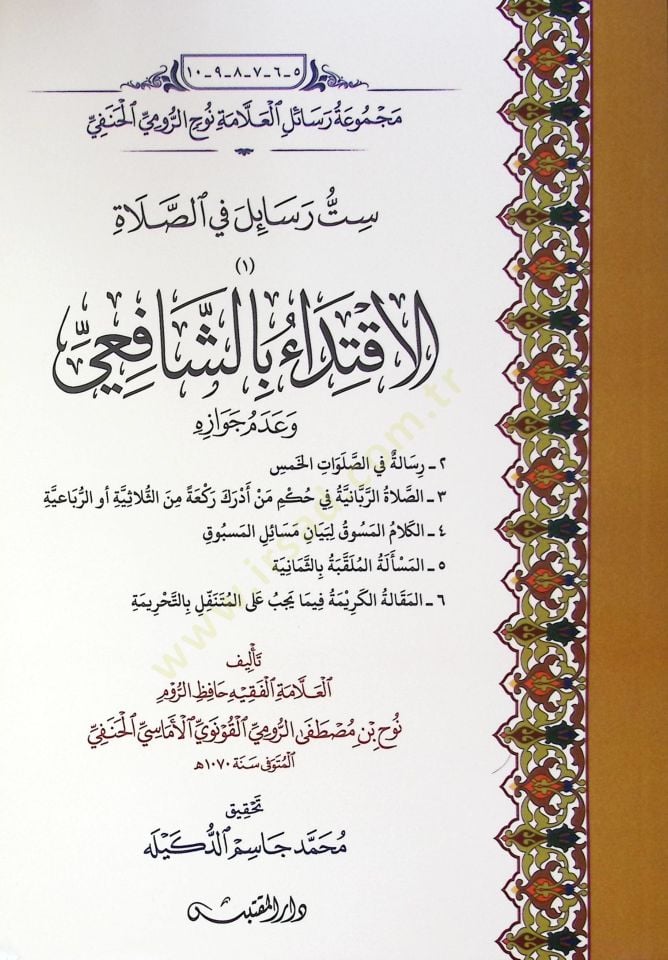 ٥-٦-٧-٨-٩-١٠
مَجْمُوعَةُ رَسَائِلِ الْعَلَّامَةِ نُوحٍ الرُّومِيِّ الْحَنَفِيِّ
سِتُّ رَسَائِلَ فِي الصَّلَاةِ
(١)
الِاقْتِدَاءُ بِالشَّافِعِيِّ
وَعَدَمُ جَوَازِهِ
٢- رِسَالَةٌ فِي الصَّلَوَاتِ الخَمسِ
٣- الصَّلاةُ الرَّبَّانِيَّةُ فِي حُكْمِ مَنْ أَدْرَكَ رَكْعَةً مِنَ الثُّلاثِيَّةِ أَو الرُّبَاعِيَّةِ
٤- الكَلَامُ المَسُوقُ لِبَيَانِ مَسَائِلِ المَسبُوقِ
٥- المَسْأَلَةُ المُلَقَّبَةُ بِالثَّمَانِيَة
٦- المَقَالَةُ الكَرِيْمَةُ فِيمَا يَجِبُ عَلَى المُتَنَفِّلِ بِالتَّحْرِيمَةِ
تَأْلِيفُ
الْعَلَّامَةِ الْفَقِيهِ حَافِظِ الرُّومِ
نُوحِ بْنِ مُصْطَفَى الرُّومِيِّ الْقُونَوِيِّ الْأَمَاسِيِّ الْحَنَفِيِّ
الْمُتَوَفَّى سَنَة ١٠٧٠ه
تَحْقِيقُ
مُحَمَّد جَاسِم الدُّكَيْلَه
دار المقتبس
www.irsad.com.tr